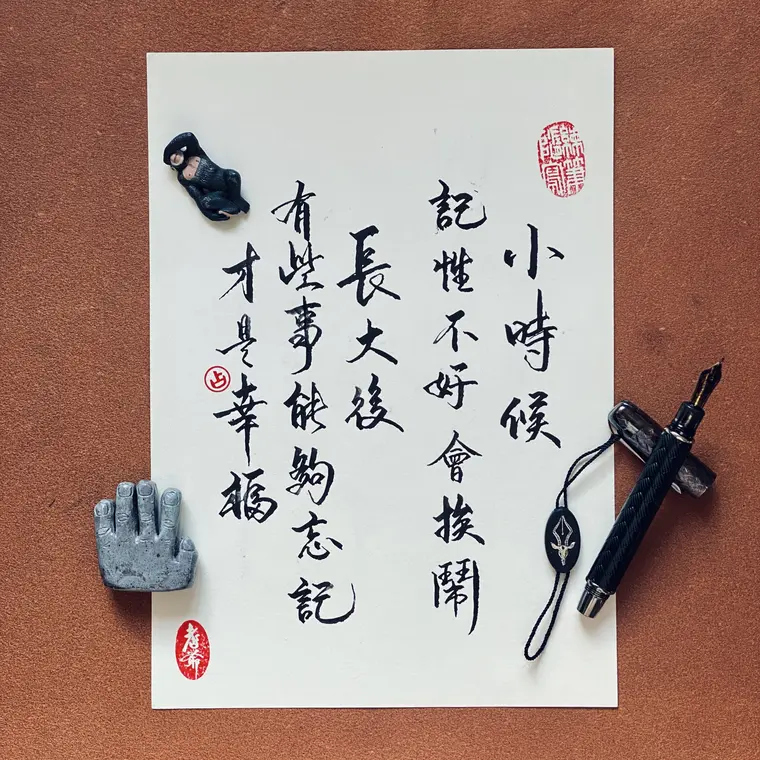 小時候
記性不好會挨鬧
長大後
有些事能夠忘記
才是幸福
占